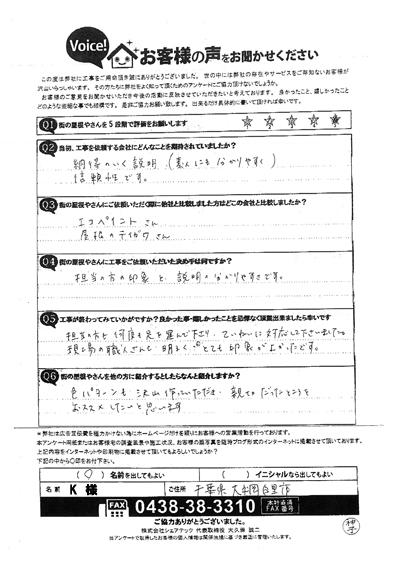 Voice!
お客様の声をお聞かせください
この度は弊社に工事をご用命頂き誠にありがとうございました。世の中には弊社の存在やサービスをご存知ないお客様が
沢山いらっしゃいます。その方たちに弊社をよく知って頂くためのアンケートにご協力頂けないでしょうか。
お客様のご意見をお聞かせいただき今後の活動に反映させていただきたいと考えております。良かったこと、嬉しかったこと
どのような些細な事でも結構です。是非ご協力お願い致します。出来るだけ具体的に書いて頂ければ幸いです。
Q1 街の屋根やさんを5段階で評価をお願いします ☆ ☆ ☆ ☆ ☆
Q2 当初、工事を依頼する会社にどんなことを期待されていましたか?
納得のいく説明(素人にも分かりやすく)
信頼性です。
Q3 街の屋根やさんにご依頼いただく際に他社と比較しました方はどこの会社と比較しましたか?
エコペイントさん
屋根のデイガクさん
Q4 街の屋根やさんに工事をご依頼いただいた決め手は何ですか?
担当の方の印象と、説明の分かりやすさです。
Q5 工事が終わってみていかがですか?良かった事・嬉しかったことを忌憚なく頂戴出来ましたら幸いです
担当の方も何度も足を運んで下さり、ていねいに対応して下さいました。
現場の職人さんも明るくとても印象が良かったです。
Q6 街の屋根やさんを他の方に紹介するとしたらなんと紹介しますか?
色パターンも沢山作っていただき、親切だったところを
おススメしたいと思います
*弊社は広告宣伝費を極力かけない為にホームページだけを頼りにお客様への営業活動を行っております。
本アンケート用紙またはお客様宅の調査風景や施工状況、お客様の顔写真を随時ブログ形式のインターネットに掲載させて頂いております。
上記内容をインターネットや印刷物に掲載させて頂いてもよろしいでしょうか?
下記の中から〇印をお付下さい。
(〇)名前を出してもよい ( )イニシャルなら出してもよい
名前 K 様 ご住所 千葉県大網白里市
FAX 0438-38-3310 本社直通FAX番号
ご協力ありがとうございました。
株式会社シェアテック 代表取締役 大久保 誠二
当アンケートで取得したお客様の個人情報は関係法規に基づき適正に管理いたします。